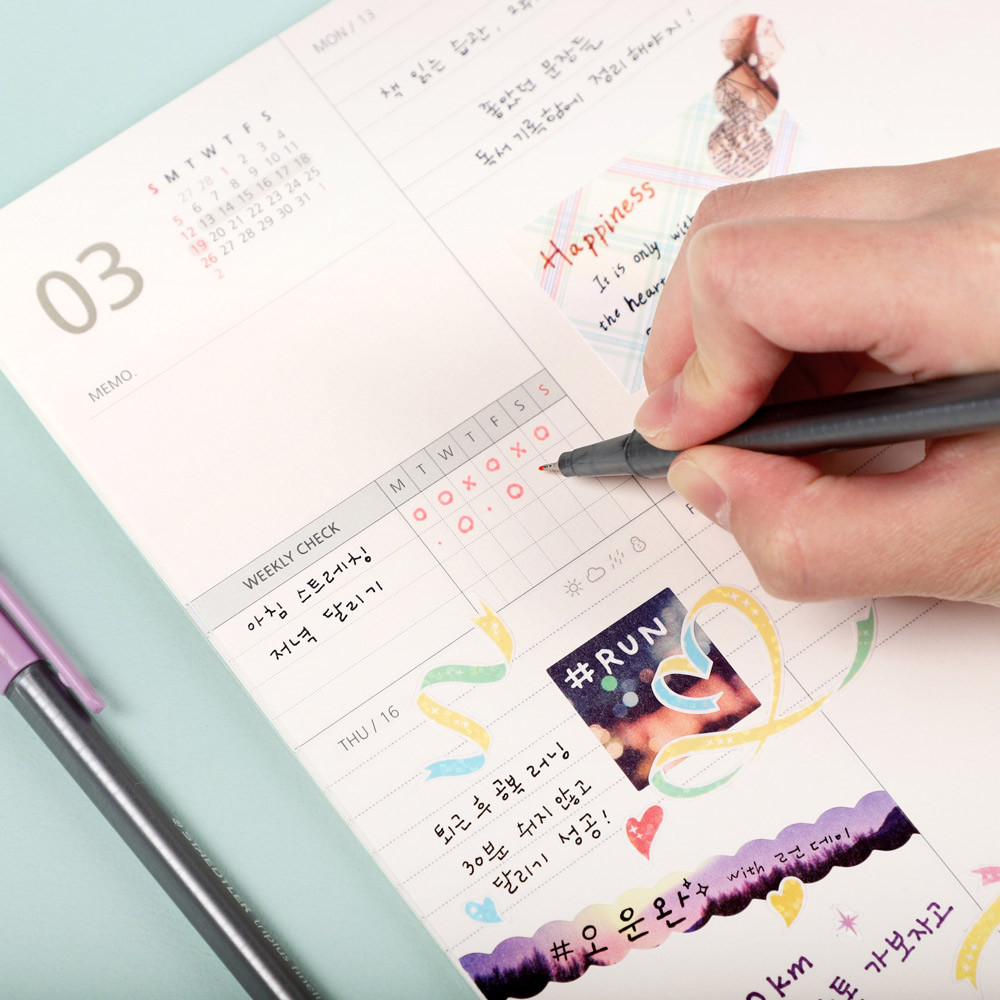 MON / 13
책 읽는 습관.
좋았던 문장들
독서기록함에 정리해야지!
S M T W T F S
27 28 1 2 3 4
5 6 7 8 9 10 11
12 13 14 15 16 17 18
19 20 21 22 23 24 25
26 27 28 29 30 31 1
2
03
MEMO.
Happiness
It is only with
the heart
WEEKLY CHECK M T W T F S S
아침 스트레칭 O O X O X O
저녁 달리기 · O · O
F
THU / 16
#RUN
퇴근 후 공복 러닝
30분 쉬지 않고
달리기 성공!
#오운완 with 런데이
km
가보자고
STAEDTLER triplus fineliner